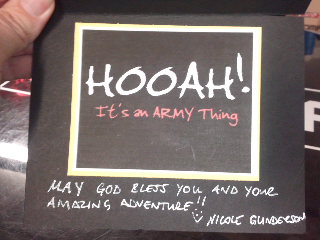 HOOAH!
It's an ARMY Thing
MAY GOD BLESS YOU AND YOUR
AMAZING ADVENTURE!!
NICOLE GUNDERSON